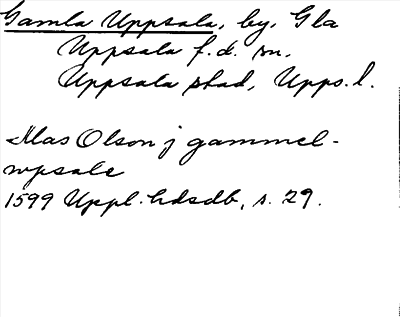 Gamla Uppsala, by, Gla
Uppsala f.d. sn,
Uppsala stad, Upps. l.
Mas Olson j gammel-
wpsale
1599 Uppl. hdsdb, s. 29.